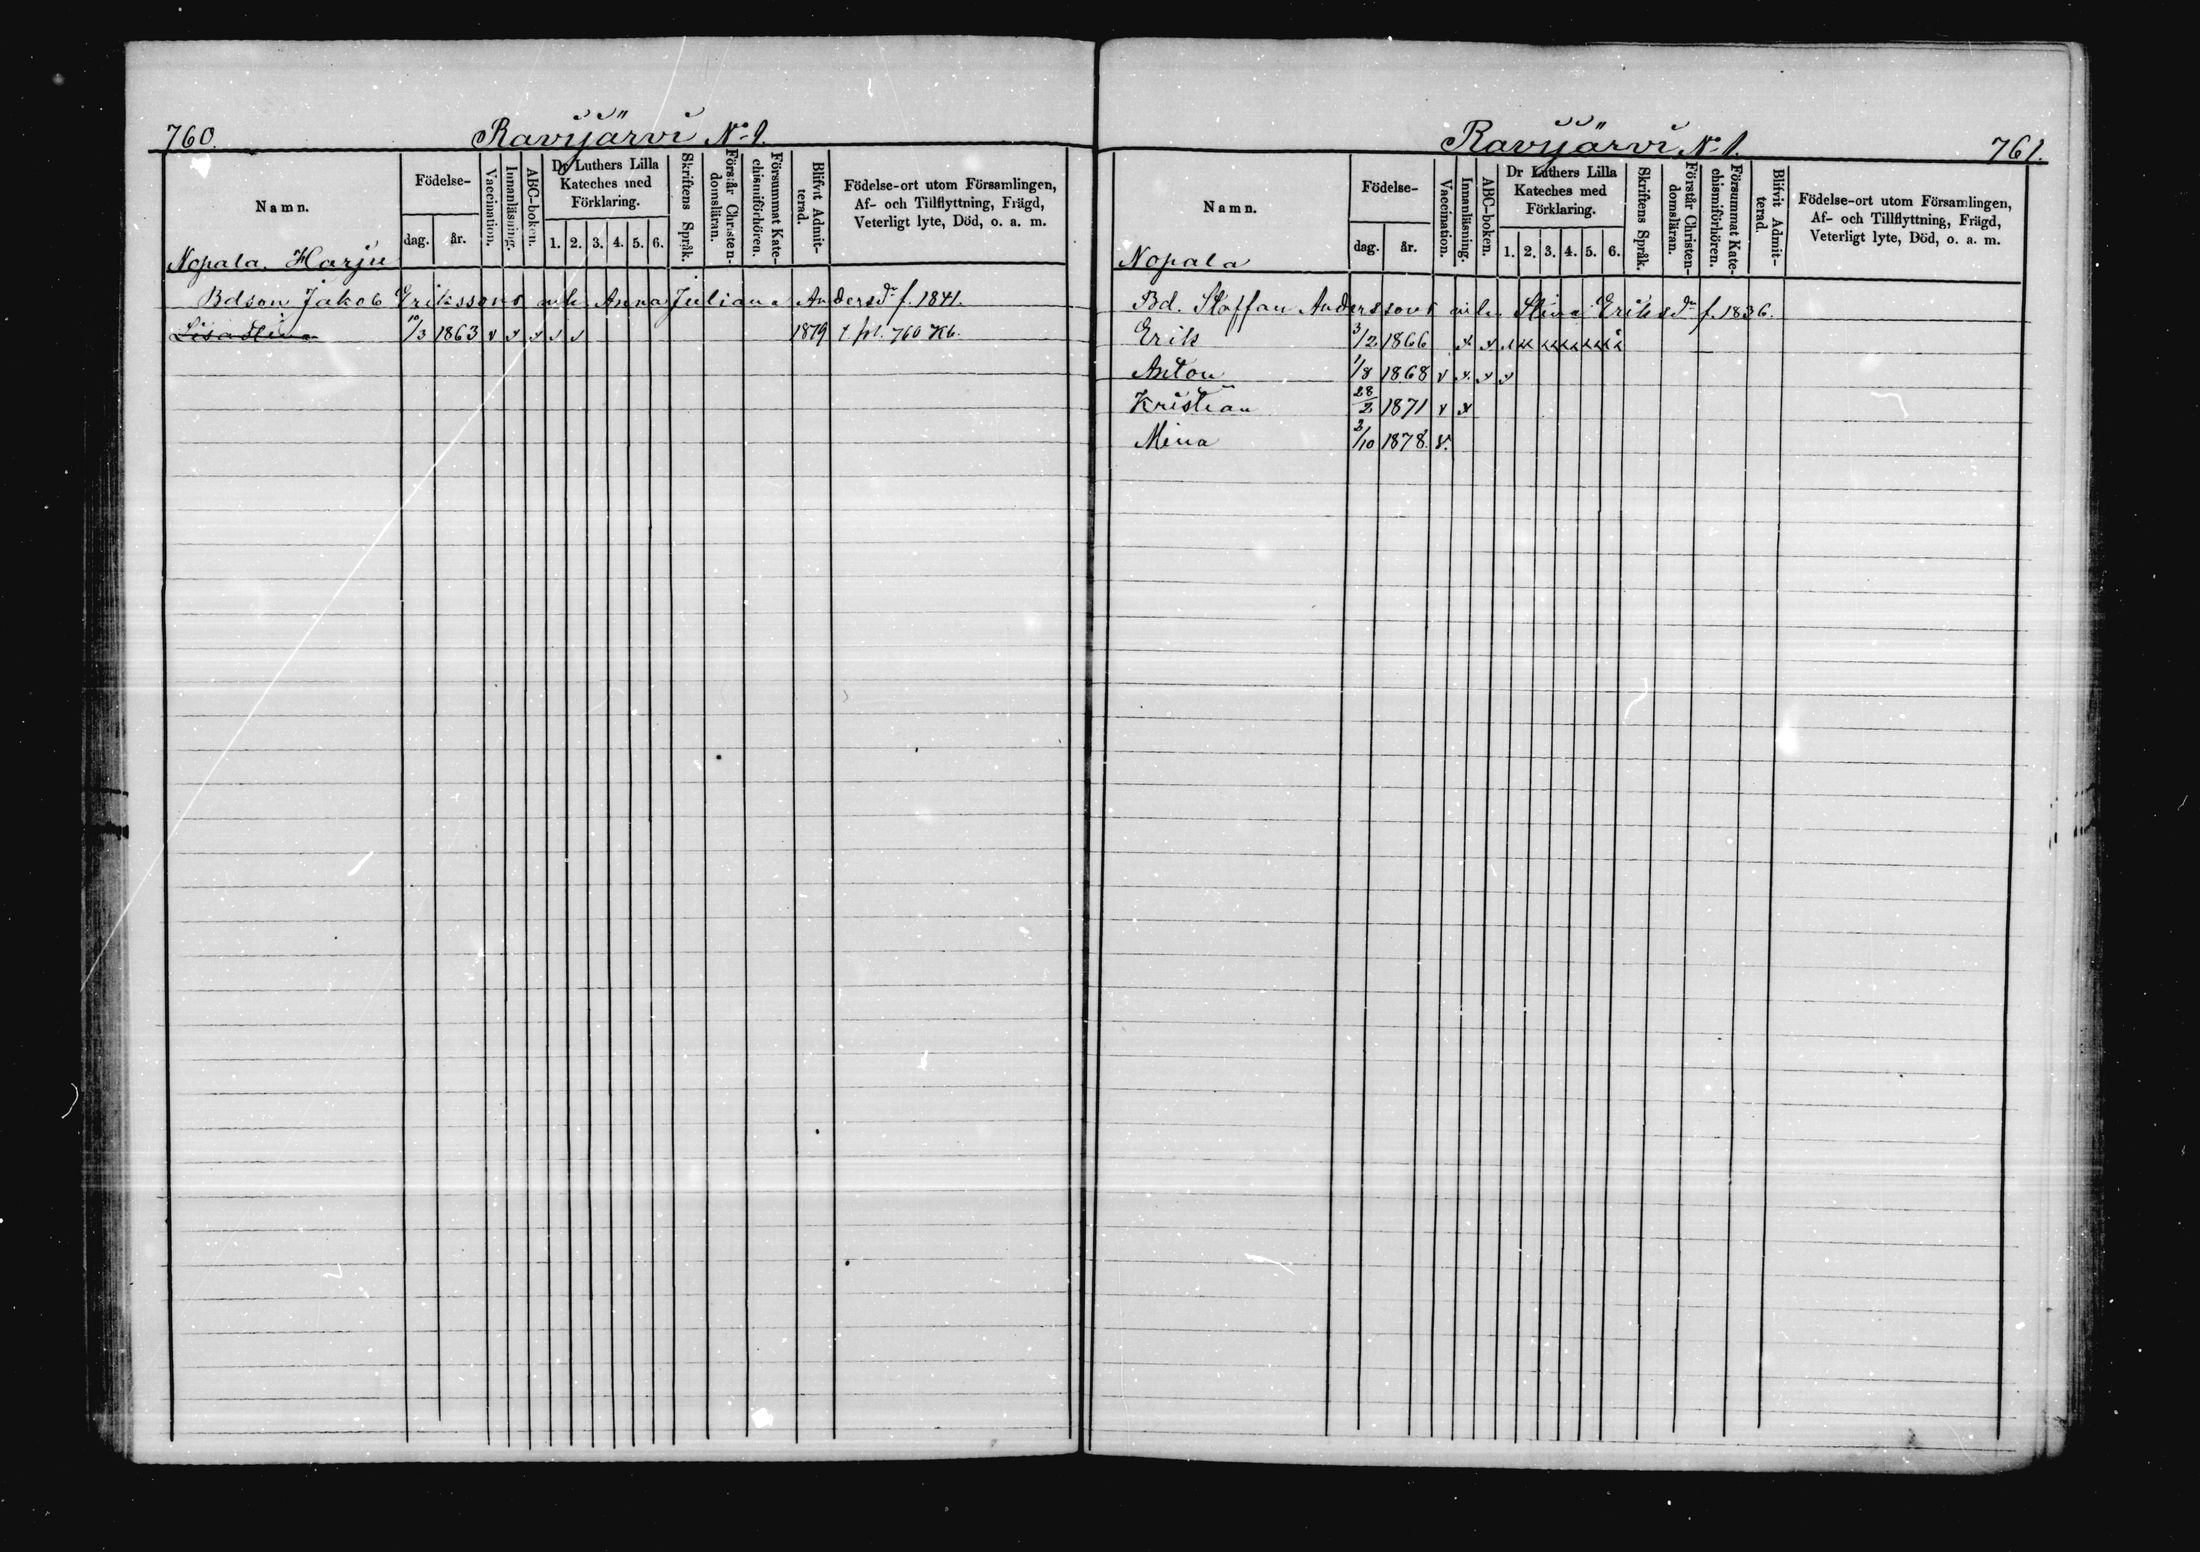 760. Ravijärvi No 1.
Namn. Födelse- dag. år. Vaccination. Innanläsning. ABC-boken. Dr Luthers Lilla Kateches med Förklaring. 1. 2. 3. 4. 5. 6. Skriftens Språk. Förstår Christendomsläran. Försummat Katechismiförhören. Blifvit Admitterad. Födelse-ort utom Församlingen, Af- och Tillflyttning, Frägd, Veterligt lyte, Död, o. a. m.
Nopala Harju
Bdson Jakob Erikssons o. h. Anna Juliana Andersdr f. 1841.
Lisa Stina 10/3 1863 v v v v v 1879 t. pl. 760 Kb.
Ravijärvi No 1. 761.
Namn. Födelse- dag. år. Vaccination. Innanläsning. ABC-boken. Dr Luthers Lilla Kateches med Förklaring. 1. 2. 3. 4. 5. 6. Skriftens Språk. Förstår Christendomsläran. Försummat Katechismiförhören. Blifvit Admitterad. Födelse-ort utom Församlingen, Af- och Tillflyttning, Frägd, Veterligt lyte, Död, o. a. m.
Nopala
Bd. Staffan Anderssons o. h. Stina Eriksdr f. 1836.
Erik 3/2 1866
Anton 1/8 1868 v
Kristian 28/2 1871 v
Mina 3/10 1878. v.